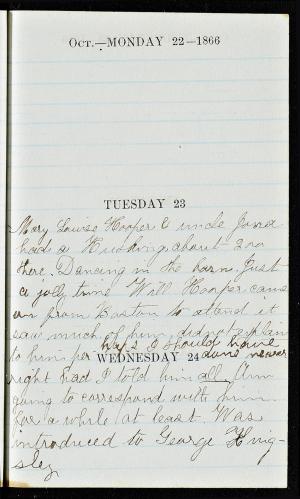 Oct.—MONDAY 22—1866
TUESDAY 23
Mary Louise Hooper & uncle Jared
had a Husking about 200
there. Dancing in the barn. Just
a jolly time Will Hooper came
on from Boston to attend it
saw much of him, did not explain
to him per haps I should have
WEDNESDAY 24 done nearer
right had I told him all. Am
going to correspond with him
for a while at least. Was
introduced to George King-
sley